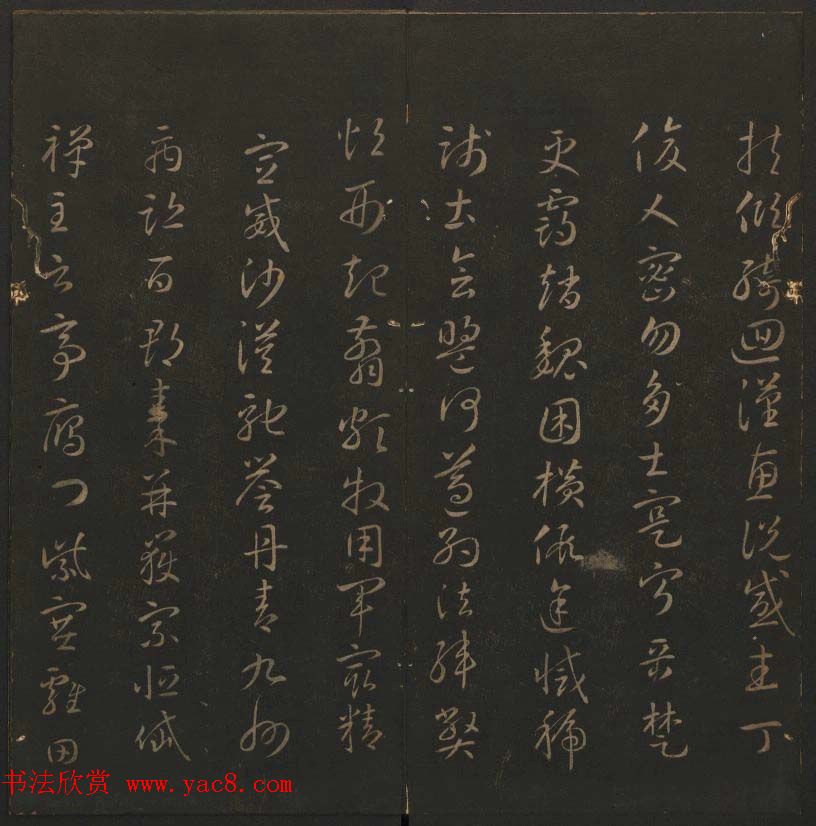 扶傾綺迴漢惠說感武丁
俊乂密勿多士寔寧晉楚
更霸趙魏困橫假途滅虢
踐土會盟何遵約法韓弊
煩刑起翦頗牧用軍最精
宣威沙漠馳譽丹青九州
禹跡百郡秦并嶽宗恒岱
禪主云亭雁門紫塞雞田
书法欣赏 www.yac8.com